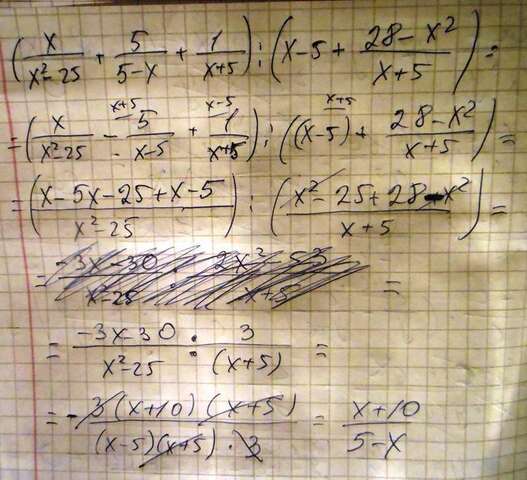 (x/(x²-25) + 5/(5-x) + 1/(x+5)) : (x-5 + (28-x²)/(x+5)) =
= (x/(x²-25) - 5/(x-5) (x+5) + 1/(x+5) (x-5)) : ((x-5) (x+5) + (28-x²)/(x+5)) =
= ((x-5x-25+x-5)/(x²-25)) : ((x²-25+28-x²)/(x+5)) =
= (-3x-30)/(x²-25) : =
= (-3x-30)/(x²-25) : 3/(x+5) =
= - (3(x+10)(x+5))/((x-5)(x+5)·3) = (x+10)/(5-x)